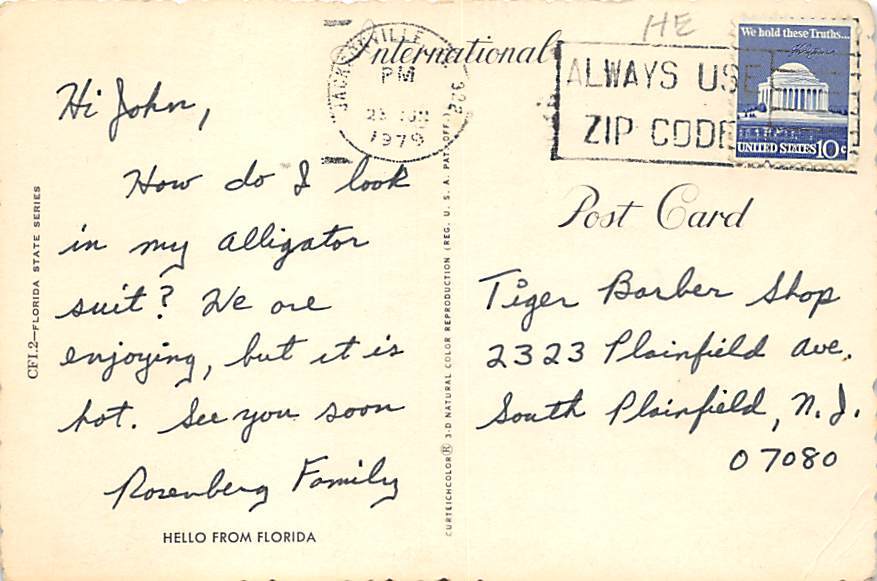 HE
International
JACKSONVILLE
PM
1979
ALWAYS USE
ZIP CODE
We hold these Truths...
UNITED STATES 10c
Post Card
Hi John,
How do I look
in my alligator
suit? We are
enjoying, but it is
hot. See you soon
Rosenberg Family
HELLO FROM FLORIDA
CFI.2—FLORIDA STATE SERIES
CURTEICHCOLOR® 3-D NATURAL COLOR REPRODUCTION (REG. U. S. A. PAT. OFF.)
Tiger Barber Shop
2323 Plainfield Ave.
South Plainfield, N.J.
07080